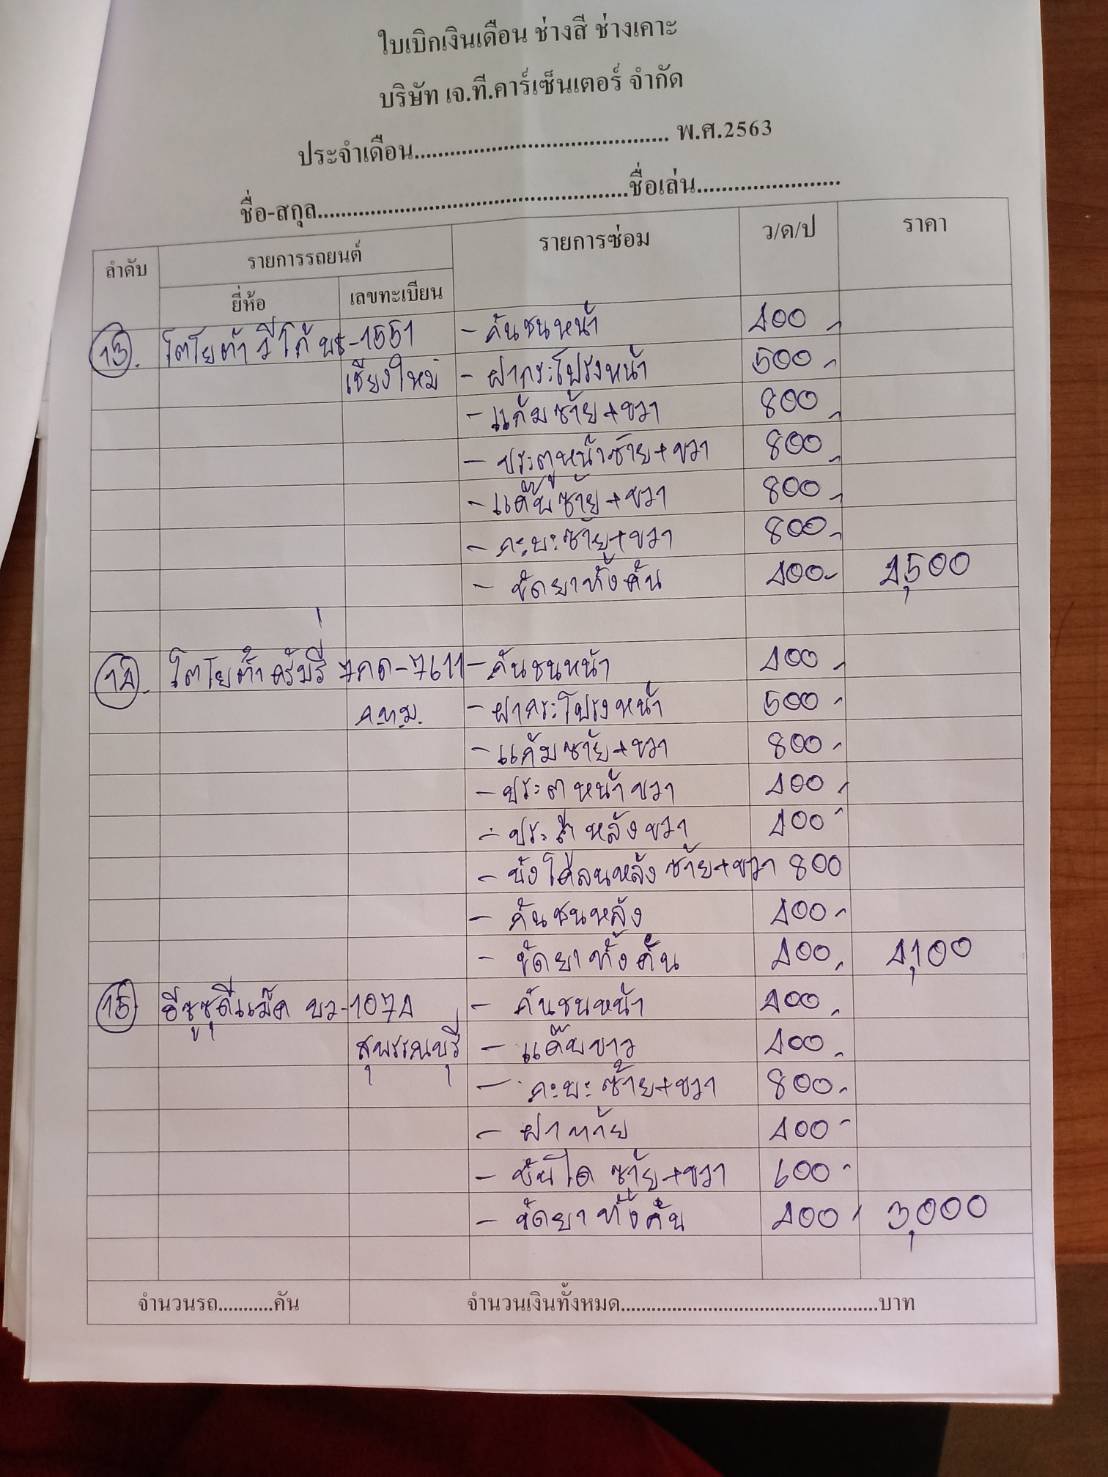 ใบเบิกเงินเดือน ช่างสี ช่างเคาะ
บริษัท เจ.ที.คาร์เซ็นเตอร์ จำกัด
ประจำเดือน........................................... พ.ศ.2563
ชื่อ-สกุล....................................................ชื่อเล่น........................
ลำดับ รายการรถยนต์ รายการซ่อม ว/ด/ป ราคา
ยี่ห้อ เลขทะเบียน
13. โตโยต้า วีโก้ บร-1551 - กันชนหน้า 400.-
เชียงใหม่ - ฝากระโปรงหน้า 500.-
- แก้มซ้าย+ขวา 800.-
- ประตูหน้าซ้าย+ขวา 800.-
- แค๊บซ้าย+ขวา 800.-
- กะบะซ้าย+ขวา 800.-
- ขัดยาทั้งคัน 400.- 4,500
14. โตโยต้า ครัมรี่ 7กด-7611 - กันชนหน้า 400.-
ก.ท.ม. - ฝากระโปรงหน้า 500.-
- แก้มซ้าย+ขวา 800.-
- ประตหน้าขวา 400.-
- ประตูหลังขวา 400.-
- บังโคลนหลัง ซ้าย+ขวา 800
- กันชนหลัง 400.-
- ขัดยาทั้งคัน 400.- 4,100
15 อีซูซุดีแม็ค บว-1074 - กันชนหน้า 400.-
สุพรรณบุรี - แค๊บขาว 400.-
- กะบะซ้าย+ขวา 800.-
- ฝาท้าย 400.-
- บันได ซ้าย+ขวา 600.-
- ขัดยาทั้งคัน 400.- 3,000
จำนวนรถ...........คัน จำนวนเงินทั้งหมด...................................................บาท